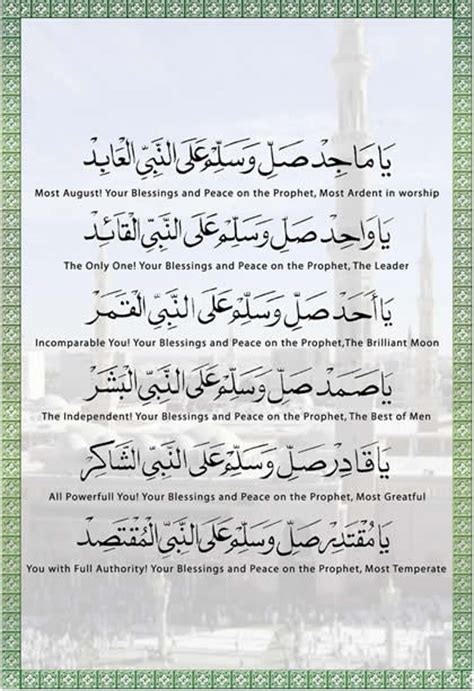 يَا مَاجِدُ صَلِّ وَسَلِّمْ عَلَى النَّبِيِّ الْعَابِدِ
Most August! Your Blessings and Peace on the Prophet, Most Ardent in worship
يَا وَاحِدُ صَلِّ وَسَلِّمْ عَلَى النَّبِيِّ الْقَائِدِ
The Only One! Your Blessings and Peace on the Prophet, The Leader
يَا أَحَدُ صَلِّ وَسَلِّمْ عَلَى النَّبِيِّ الْقَمَرِ
Incomparable You! Your Blessings and Peace on the Prophet,The Brilliant Moon
يَا صَمَدُ صَلِّ وَسَلِّمْ عَلَى النَّبِيِّ الْبَشَرِ
The Independent! Your Blessings and Peace on the Prophet, The Best of Men
يَا قَادِرُ صَلِّ وَسَلِّمْ عَلَى النَّبِيِّ الشَّاكِرِ
All Powerfull You! Your Blessings and Peace on the Prophet, Most Greatful
يَا مُقْتَدِرُ صَلِّ وَسَلِّمْ عَلَى النَّبِيِّ الْمُقْتَصِدِ
You with Full Authority! Your Blessings and Peace on the Prophet, Most Temperate